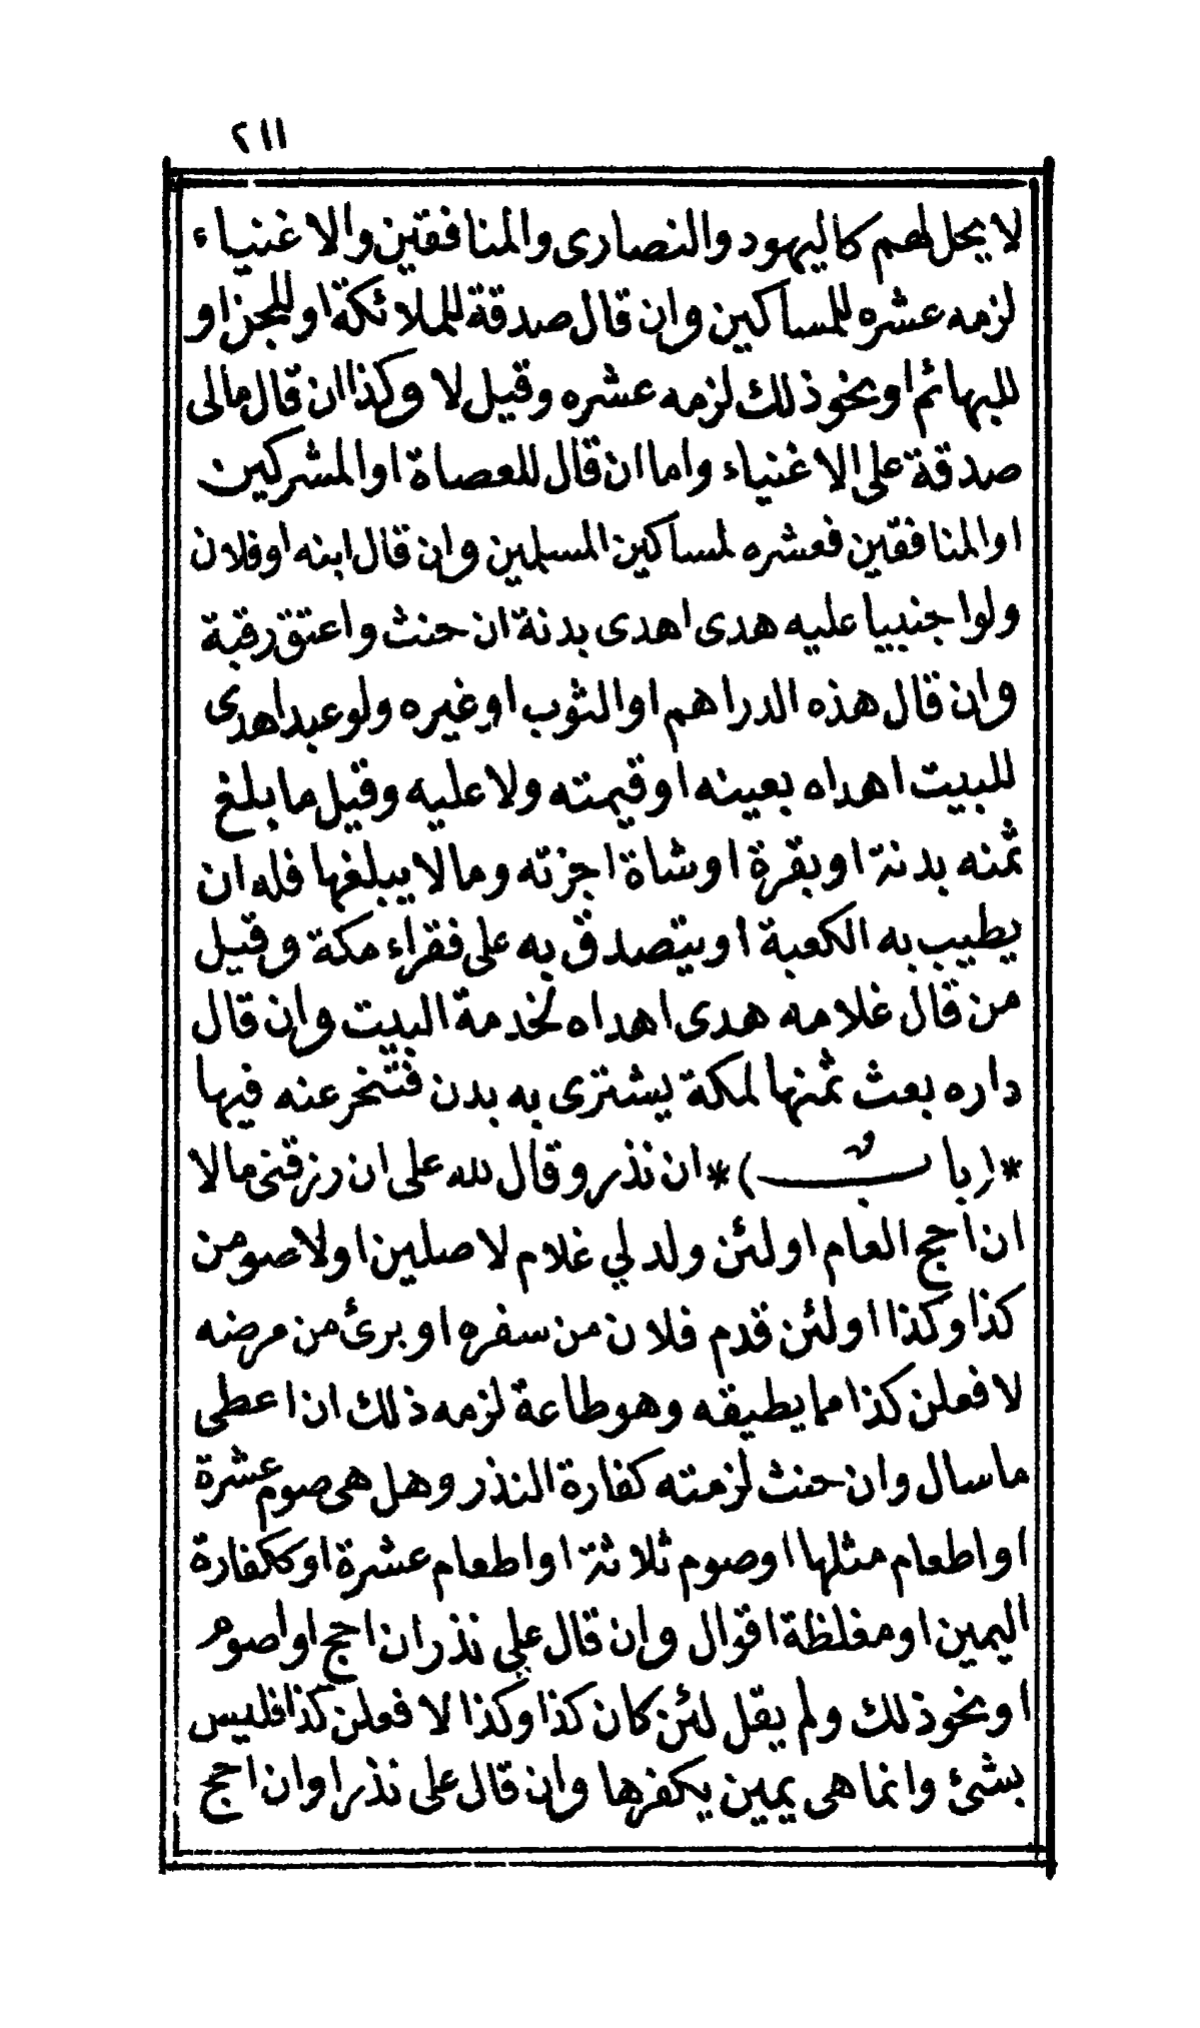 ٢١١
لا يحل لهم كاليهود والنصارى والمنافقين والاغنياء
لزمه عشره للمساكين وان قال صدقة للملائكة او للجن او
للبهائم او نحو ذلك لزمه عشره وقيل لا وكذا ان قال مالى
صدقة على الاغنياء واما ان قال للعصاة او المشركين
او المنافقين فعشره لمساكين المسلمين وان قال ابنه او فلان
ولو اجنبيا عليه هدى اهدى بدنة ان حنث واعتق رقبة
وان قال هذه الدراهم او الثوب او غيره ولو عبد اهدى
للبيت اهداه بعينه او قيمته ولا عليه وقيل ما بلغ
ثمنه بدنة او بقرة او شاة اجزته وما لا يبلغها فله ان
يطيب به الكعبة او يتصدق به على فقراء مكة وقيل
من قال غلامه هدى اهداه لخدمة البيت وان قال
داره بعث ثمنها لمكة يشترى به بدن فتنحر عنه فيها
*(باب)* ان نذر وقال لله على ان رزقنى مالا
ان احج العام او لئن ولد لي غلام لاصلين او لاصومن
كذا وكذا او لئن قدم فلان من سفره او برئ من مرضه
لافعلن كذا مما يطيقه وهو طاعة لزمه ذلك ان اعطى
ما سال وان حنث لزمته كفارة النذر وهل هى صوم عشرة
او اطعام مثلها او صوم ثلاثة او اطعام عشرة او ككفارة
اليمين او مغلظة اقوال وان قال علي نذر ان احج او اصوم
او نحو ذلك ولم يقل لئن كان كذا وكذا لافعلن كذا فليس
بشئ وانما هى يمين يكفرها وان قال على نذر او ان احج